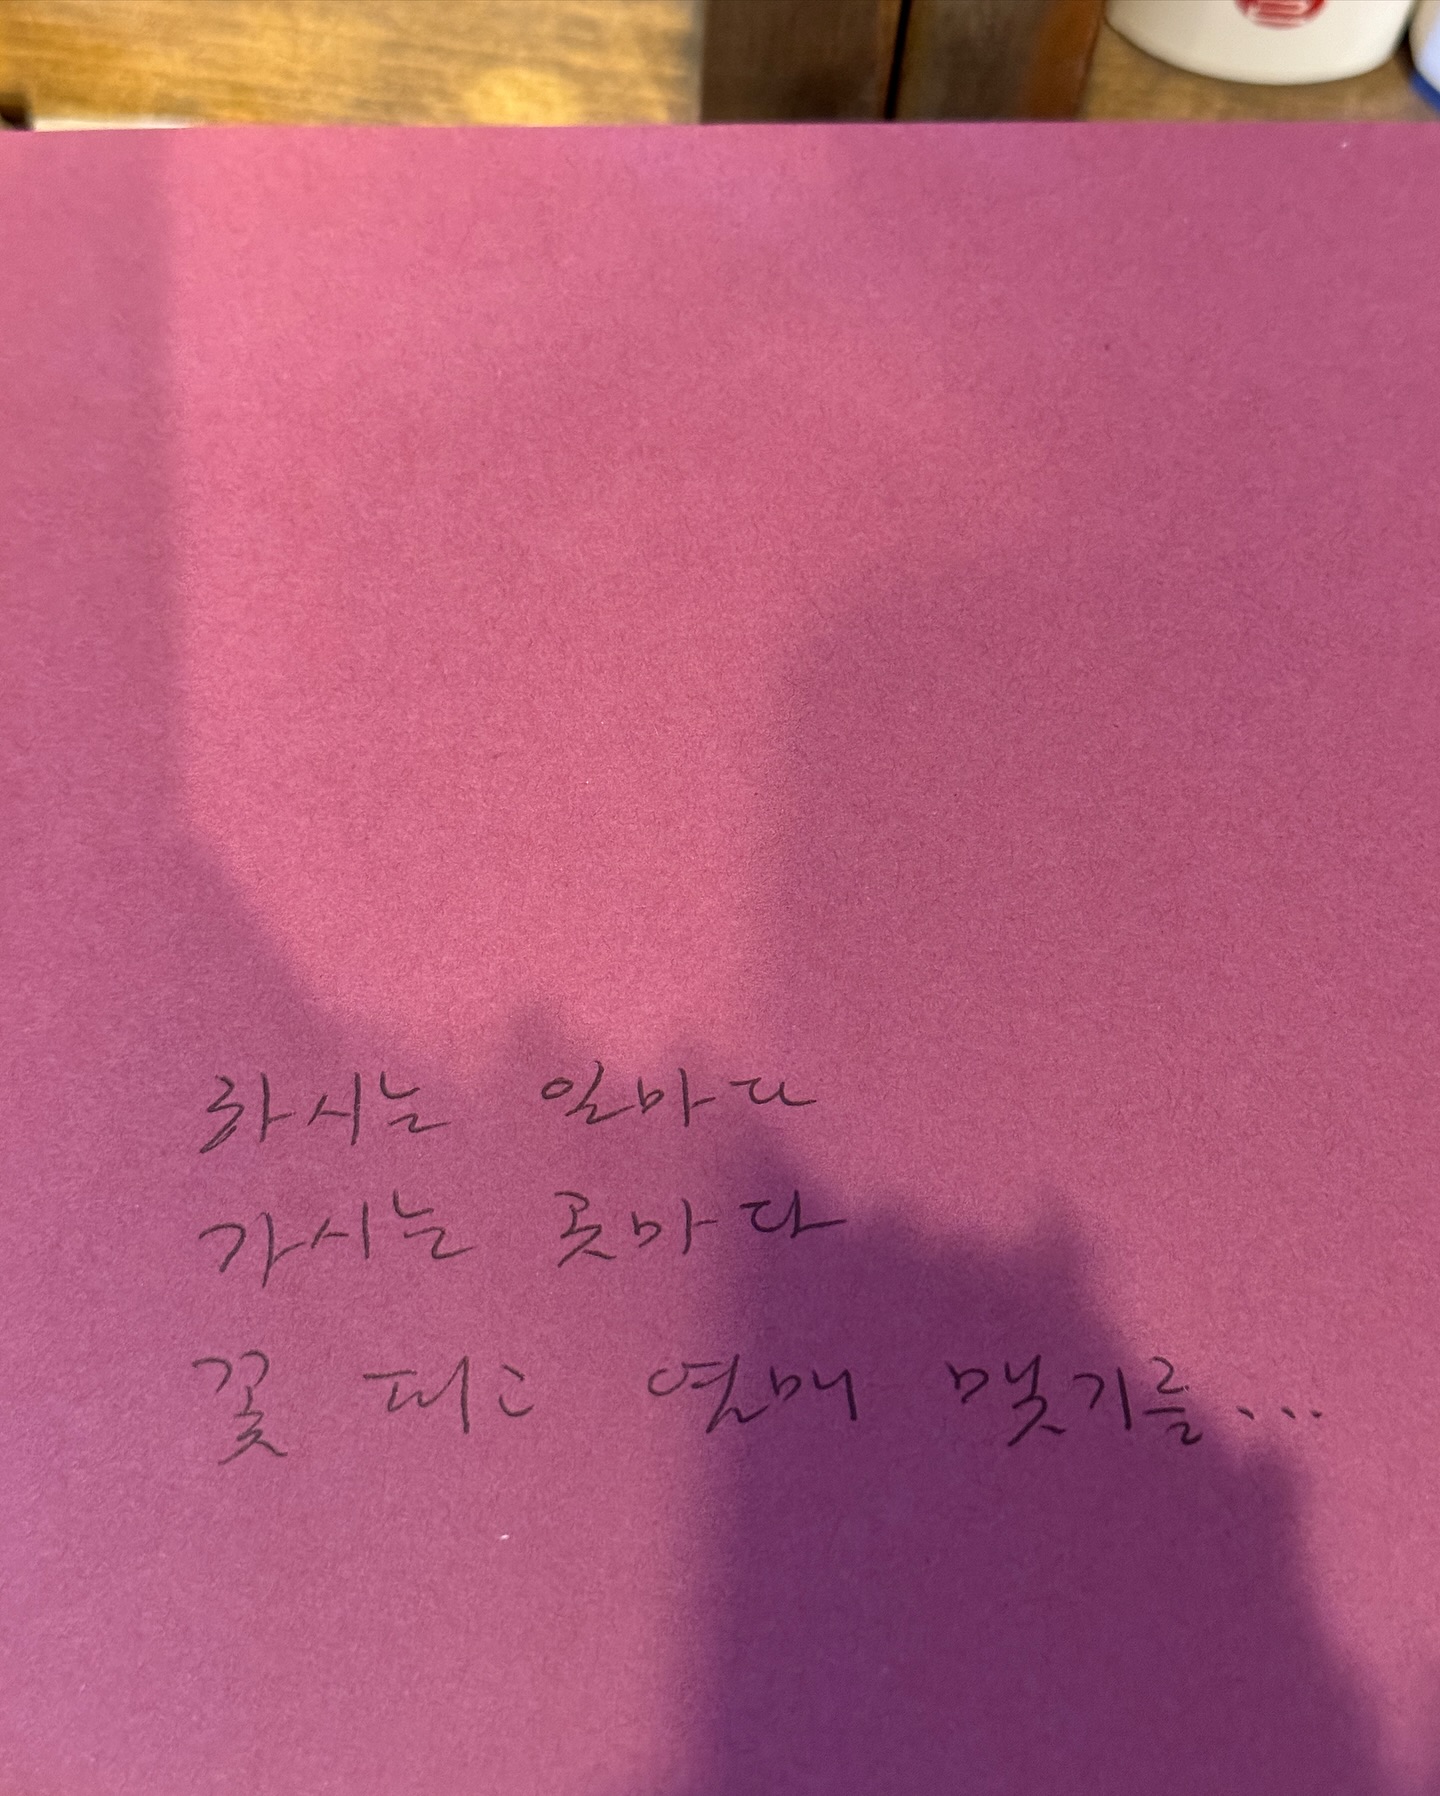 하시는 일마다
가시는 곳마다
꽃 피고 열매 맺기를...